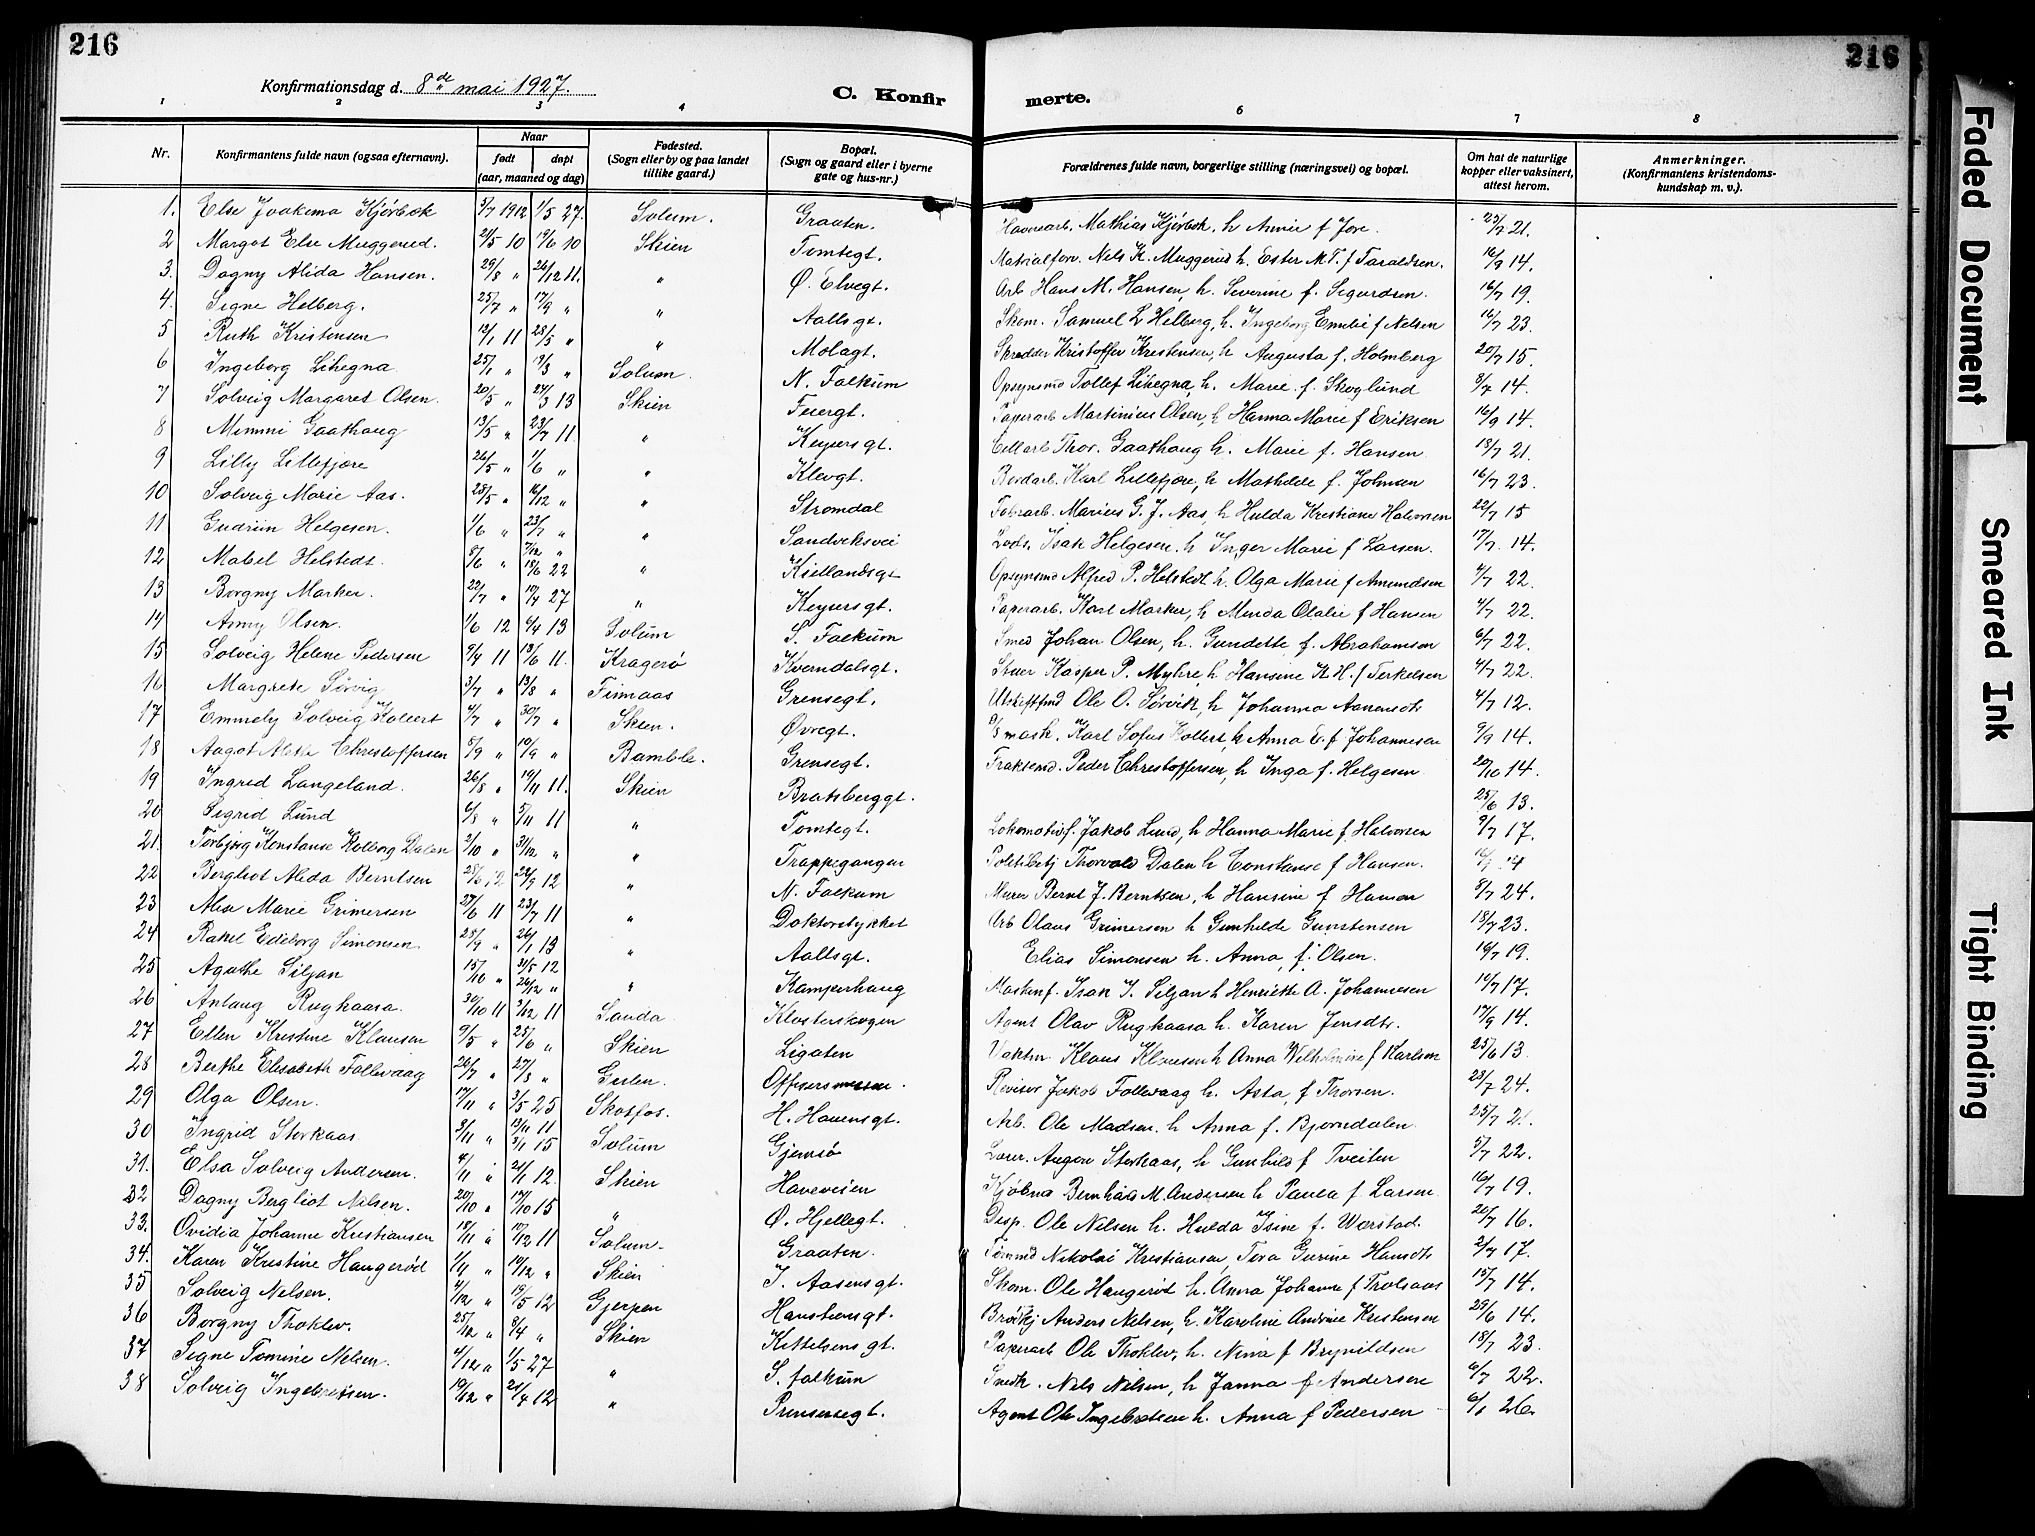 216
216
Konfirmationsdag d. 8de mai 1927.
C. Konfirmerte.
1 2 3 4 6 7 8
Nr. Konfirmantens fulde navn (ogsaa efternavn). Naar født døpt (aar, maaned og dag) Fødested. (Sogn eller by og paa landet tillike gaard.) Bopæl. (Sogn og gaard eller i byerne gate og hus-nr.) Forældrenes fulde navn, borgerlige stilling (næringsvei) og bopæl. Om hat de naturlige kopper eller vaksinert, attest herom. Anmerkninger. (Konfirmantens kristendomskundskap m. v.).
1. Else Joakema Kjørbek 5/7 1912 1/5 27. Solum. Graaten. Mathias Kjørbek, h Annie f Jore. 21.
2 Margot Else Muggerud. 21/5 10 19/6 10 Skien Tomtegt. Nels K. Muggerud h. Ester M.T. f Taraldsen. 16/9 14.
3. Dagny Alida Hansen. 29/8 " 26/12 11. " Ø. Elvegt. Arb Hans M. Hansen, h. Severine f. Segurdsen. 16/7 19.
4. Signe Helberg. 25/7 " 17/9 " " Aallsgt. Skom. Samuel L Helberg, h. Ingeborg Emelie f Nelsen 16/7 23.
5 Ruth Kristensen 12/1 11 28/5 " " Molagt. Skredder Kristoffer Kristensen, h Augusta f. Holmberg 20/7 15.
6 Ingeborg Lihegna 25/1 " 19/3 " Solum. N. Falkum Opsynsmd Tollef Lihegna, h. Marie f. Skoglund 8/7 14.
7 Solveig Margaret Olsen. 20/5 " 24/3 13 Skien Feiergt. Paperarb Martinius Olsen, h Hanna Marie f Eriksen 16/9 14.
8 Mimmi Gaathaug 13/5 " 23/7 11. " Keysersgt. Cellarb Thor. Gaathaug h. Marie f. Hansen 18/7 21.
9 Lilly Lillefjære 26/5 " 1/6 " " Klevgt. Bordarb. Karl Lillefjære, h Mathilde f. Johnsen 16/7 23.
10 Solveig Marie Aas. 28/5 " 16/12 " " Stromdal Fabrarb. Marius G. J. Aas, h Hulda Kristiane Halvorsen 22/7 15
11 Gudrun Helgesen. 1/6 " 23/7 " " Sandviksvei Lods. Isak Helgesen. h Inger Marie f Larsen. 17/7. 14.
12 Mabel Helstedt. 8/6 " 7/12 " " Kiellandsgt Opsynsmd Alfred P. Helstedt h. Olga Marie f Amundsen 4/7 22.
13 Borgny Marker. 22/7 " 18/6 22 17/4 27 " Keysersgt. Paperarb. Karl Marker, h Minda Otalie f Hansen 4/7 22.
14 Anny Olsen. 1/6 12 6/4 13 Solum S. Falkum Smed Johan Olsen, h. Gundette f. Abrahamson 6/7 22.
15 Solveig Helene Pedersen 9/4 11 13/6 11. Kragerø Kverndalsgt. Stuer Kasper P. Myhre, h. Hansine K. H. f Terkelsen 4/7 22.
16 Margrete Sørvig 3/7 " 13/8 " Grensegt. Ole O. Sørvik, h Johanna Aanensdtr 4/7 12.
17 Emmely Solveig Kollert 4/7 " 30/7 " Skien. Øvregt. Karl Sofus Kollert, h Anna E. f Johannesen 9/9 14.
18 Aagot Alette Christoffersen 5/9 " 10/9 " Bamble. Grensegt. Peder Christoffersen, h Inga f. Helgesen 29/10 14.
19 Ingrid Langeland. 26/8 " 19/11 11. Skien Bratsberggt. 25/6 13.
20 Sigrid Lund 6/8 " 5/11 11 " Tomtegt. Lokomotivf. Jakob Lund, h Hanna Marie f Halvorsen 9/7 17.
21. Torbjørg Konstanse Kolberg Dalen 2/10 " 31/12 " " Trappegangen Politibetj Thorvald Dalen h Constanse f Hansen.
22 Bergliot Alida Berntsen 28/6 12 22/9 12 " N. Falkum Murer Bernt J. Berntsen, h Hansine f Hansen 8/7 24.
23 Marie Grimersen 27/6 11 23/7 11 " Doktorstykket Arb Olaus Grimersen h Gunhilde Gunstensen 18/7 23.
24 Rakel Edeborg Simonsen 25/9 " 26/1 13 " Aallsgt. Elias Simonsen h. Anna f. Olsen. 16/7 19.
25 Agathe Siljan 15/10 " 31/5 12 " Kamperhaug Maskinf. Isak I. Siljan h Henriette A. Johannesen 16/7 17.
26 Anlaug Rughaasa 30/10 11 26/12 " 3/12 11 Sauda Klosterskogen Agent Olav Rughaasa h. Karen Jensdtr. 17/9 14.
27 Ellen Kristine Klausen 9/5 " 25/6 " Skien Ligaten Klaus Klausen h Anna Wilhelmine f Karlsen 25/6 13.
28 Berthe Elisabeth Follevaag 26/7 " 27/8 " Offisersmessen. Revisor Jakob Follevaag h. Asta, f Thorsen. 28/7 24.
29 Olga Olsen. 17/11 " 3/5 25 Skotfos. H. Hauensgt. Arb. Ole Madsen. h Anna f. Bjorndalen 25/7
30 Ingrid Storkaas 3/11 " 12/11 11 3/1 15 Solum Gjemsø Augen Storkaas, h Gunhild f Tveiten 5/7 22.
31. Elsa Solveig Andersen. 4/11 " 21/1 12. Skien Haveveien Bernhard M. Andersen h Paula f. Larsen 16/7 19.
32 Dagny Bergliot Nilsen. 20/10 " 17/10 15 " Ø. Hjellegt. Desp. Ole Nilsen h. Hulda Isine f. Wærstad. 20/7 16.
33. Ovidia Johanne Kristiansen 18/11 " 17/12 11 Solum. Graaten. Nikolai Kristiansen, Tora Gurine Hansdtr 2/7 17.
34. Karen Kristine Haugerød 1/11 " 19/12 " Skien J. Aasensgt. Skom. Ole Haugerød h. Anna Johanne f Trolsaas 15/7 14.
35 Solveig Nelsen. 4/12 " 19/5 12 Gjerpen Hanstensgt. Anders Nelsen, h. Karoline Andrine Kristensen 29/6 14.
36 Borgny Thoklev. 25/12 " 8/4 " Skien Kittelsensgt. Paperarb Ole Thoklev, h. Nina f Brynildsen 18/7 23.
37 Signe Tomine Nelsen. 4/12 " 1/5 27 " S. falkum Snedk. Nels Nilsen, h Janna f Andersen 6/7 22.
38 Solveig Ingebretsen. 19/12 " 21/4 12 " Prinsensegt. Agent Ole Ingebretsen h. Anna f Pedersen 6/1 26.
Faded Document
Smeared Ink
Tight Binding